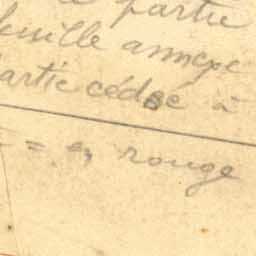 partie
feuille annexe
partie cédée à
= en rouge